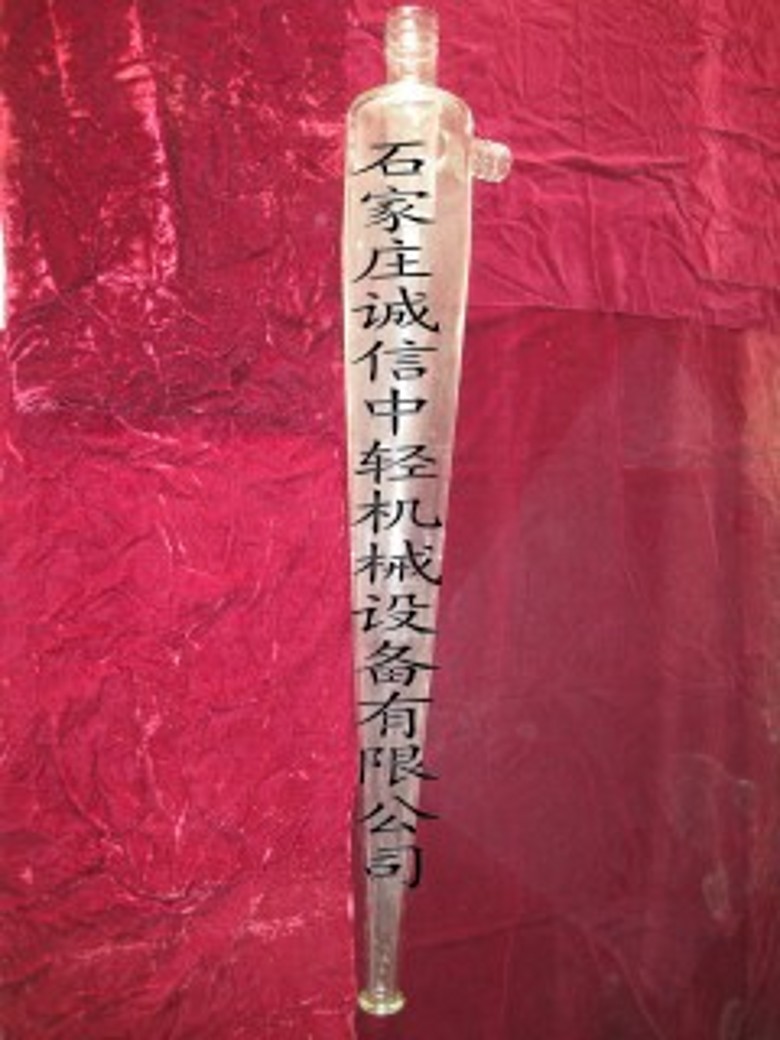 石家庄诚信中轻机械设备有限公司